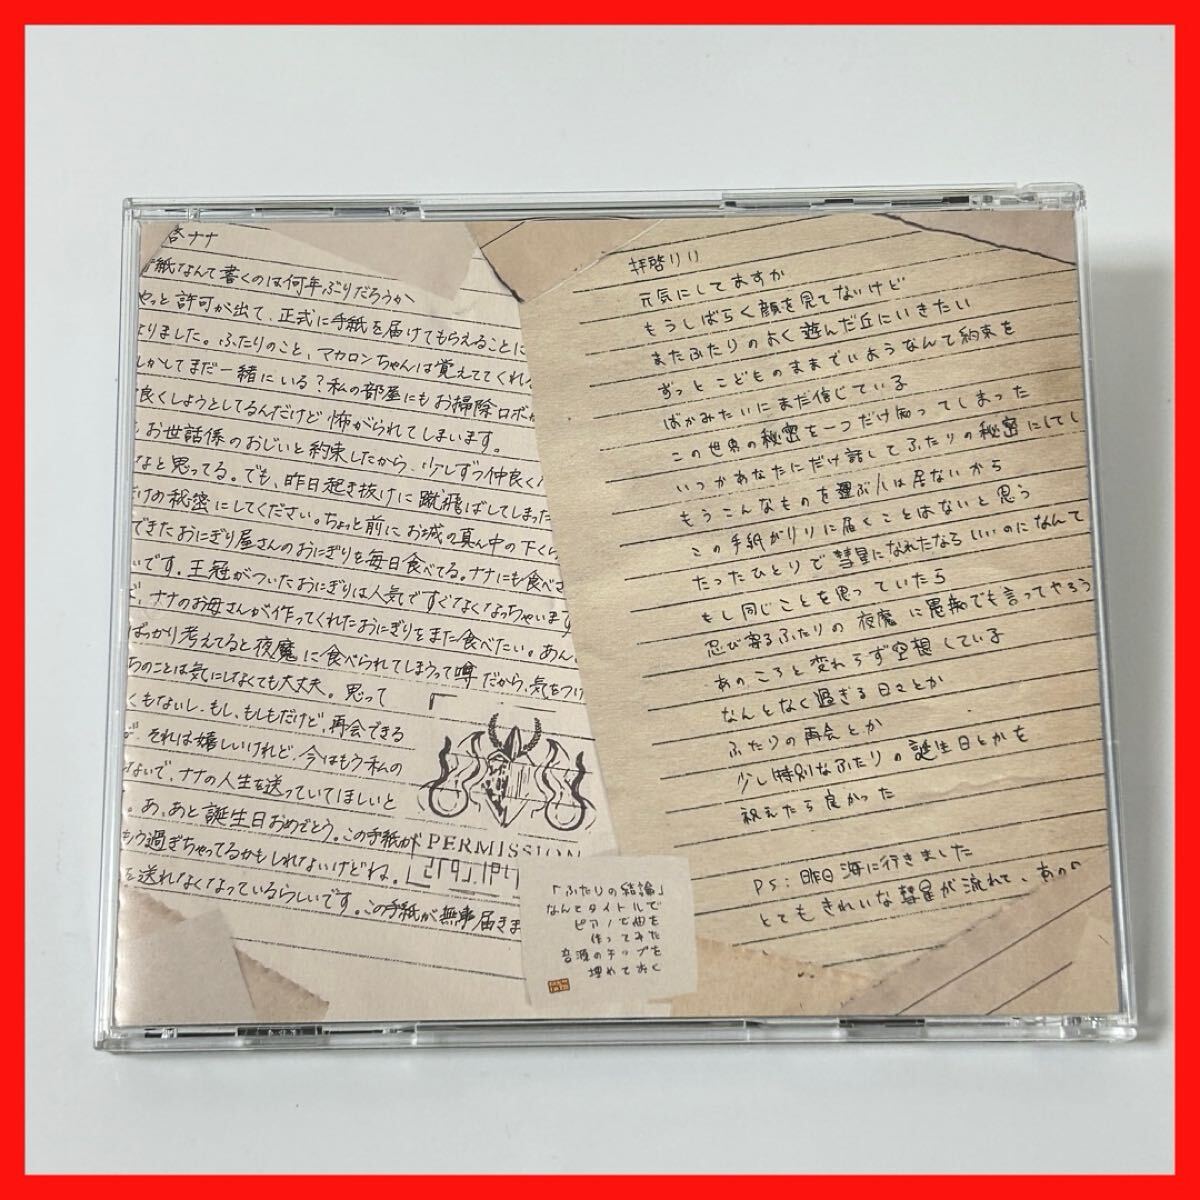 啓ナナ
紙なんて書くのは何年ぶりだろうか
やっと許可が出て、正式に手紙を届けてもらえることに
なりました。ふたりのこと、マカロンちゃんは覚えててくれる
しかしてまだ一緒にいる？私の部屋にもお掃除ロボが
良くしようとしてるんだけど怖がられてしまいます。
お世話係のおじいと約束したから、少しずつ仲良く
なと思ってる。でも、昨日起き抜けに蹴飛ばしてしまった
けの秘密にしてください。ちょっと前にお城の真ん中の下くら
できたおにぎり屋さんのおにぎりを毎日食べてる。ナナにも食べさ
いです。王冠がついたおにぎりは人気ですぐなくなっちゃいます
ナナのお母さんが作ってくれたおにぎりをまた食べたい。あん
ばっかり考えてると夜魔に食べられてしまうって噂だから、気をつけ
ちのことは気にしなくても大丈夫。思って
くもないし、もし、もしもだけど、再会できる
それは嬉しいけれど、今はもう私の
ないで、ナナの人生を送っていてほしいと
。あ、あと誕生日おめでとう。この手紙が
もう過ぎちゃってるかもしれないけどね。
を送れなくなっているらしいです。この手紙が無事届きま
PERMISSION
拝啓リリ
元気にしてますか
もうしばらく顔を見てないけど
またふたりのよく遊んだ丘にいきたい
ずっとこどものままでいようなんて約束を
ばかみたいにまだ信じている
この世界の秘密を一つだけ知ってしまった
いつかあなたにだけ話してふたりの秘密にしてし
もうこんなものを運ぶ人は居ないから
この手紙がリリに届くことはないと思う
たったひとりで彗星になれたならいいのになんて
もし同じことを思っていたら
忍び寄るふたりの夜魔に愚痴でも言ってやろう
あのころと変わらず空想している
なんとなく過ぎる日々とか
ふたりの再会とか
少し特別なふたりの誕生日とかを
祝えたら良かった
PS：昨日海に行きました
とてもきれいな彗星が流れて、あの
「ふたりの結論」
なんてタイトルで
ピアノで曲を
作ってみた
音源のチップを
埋めておく